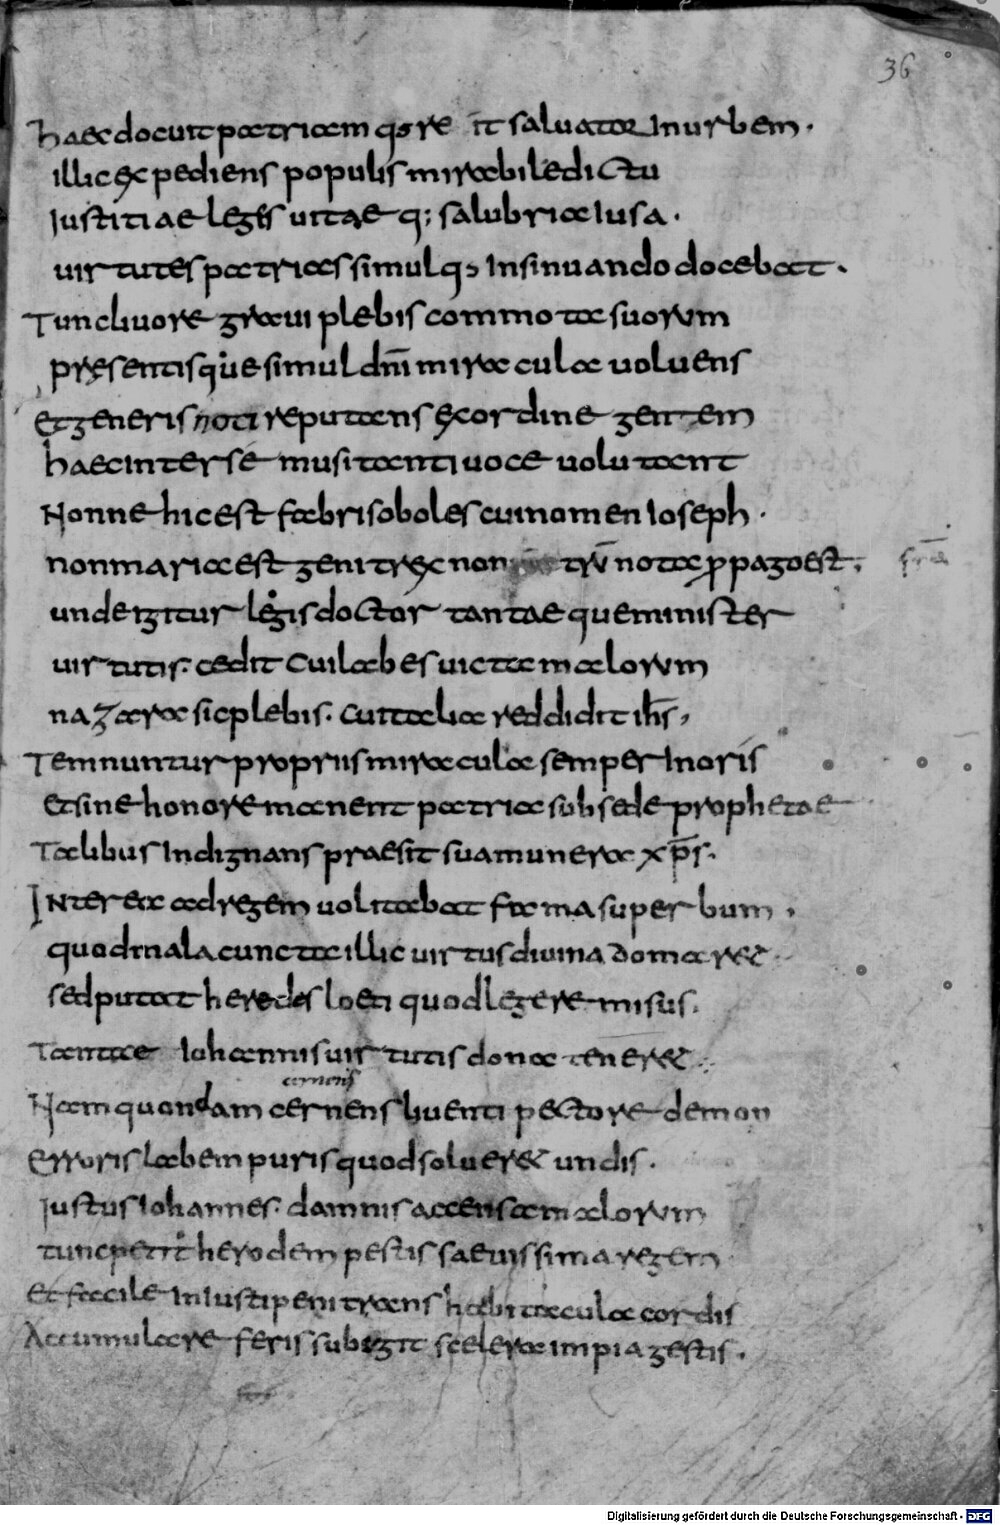 36
haec docuit patriam qs re it saluator In urbem.
illic expediens populis mirabile dictu
Iustitiae legis uitae q; salubria Iusa.
uirtutes patrias simulq; Insinuando docebat.
Tunc liuore graui plebis commota suorum
presentisque simul dn̄i miracula uoluens
et generis noti reputans ex ordine gentem
haec inter se musitanti uoce uolutant
Nonne hic est fabri soboles cui nomen Ioseph.
non maria est genitrex non trū nota ꝓpago est.
frā
unde igitur legis doctor tantaeque minister
uirtutis. cedit cui labes uicta malorum
nazara sic plebis. cui talia reddidit ih̄s,
Temnuntur propriis miracula semper In oris
et sine honore manent patria sub sede prophetae
Talibus Indignans praesit sua munera xp̄s.
Interea ad regem uolitabat fama superbum.
quod mala cuncta illic uirtus diuina domaret
sed putat heredes loeti quod legere misus.
Tantae Iohannis uirtutis dona teneret.
cernens
Nam quondam cernens liuenti pectore demon
erroris labem puris quod solueret undis.
Iustus Iohannes. damnis accensa malorum
tunc petit herodem pestis saeuissima regem
Et facile Iniusti penitrans habitacula cordis
Accumulare feris subigit scelera impia gestis.
Digitalisierung gefördert durch die Deutsche Forschungsgemeinschaft - DFG